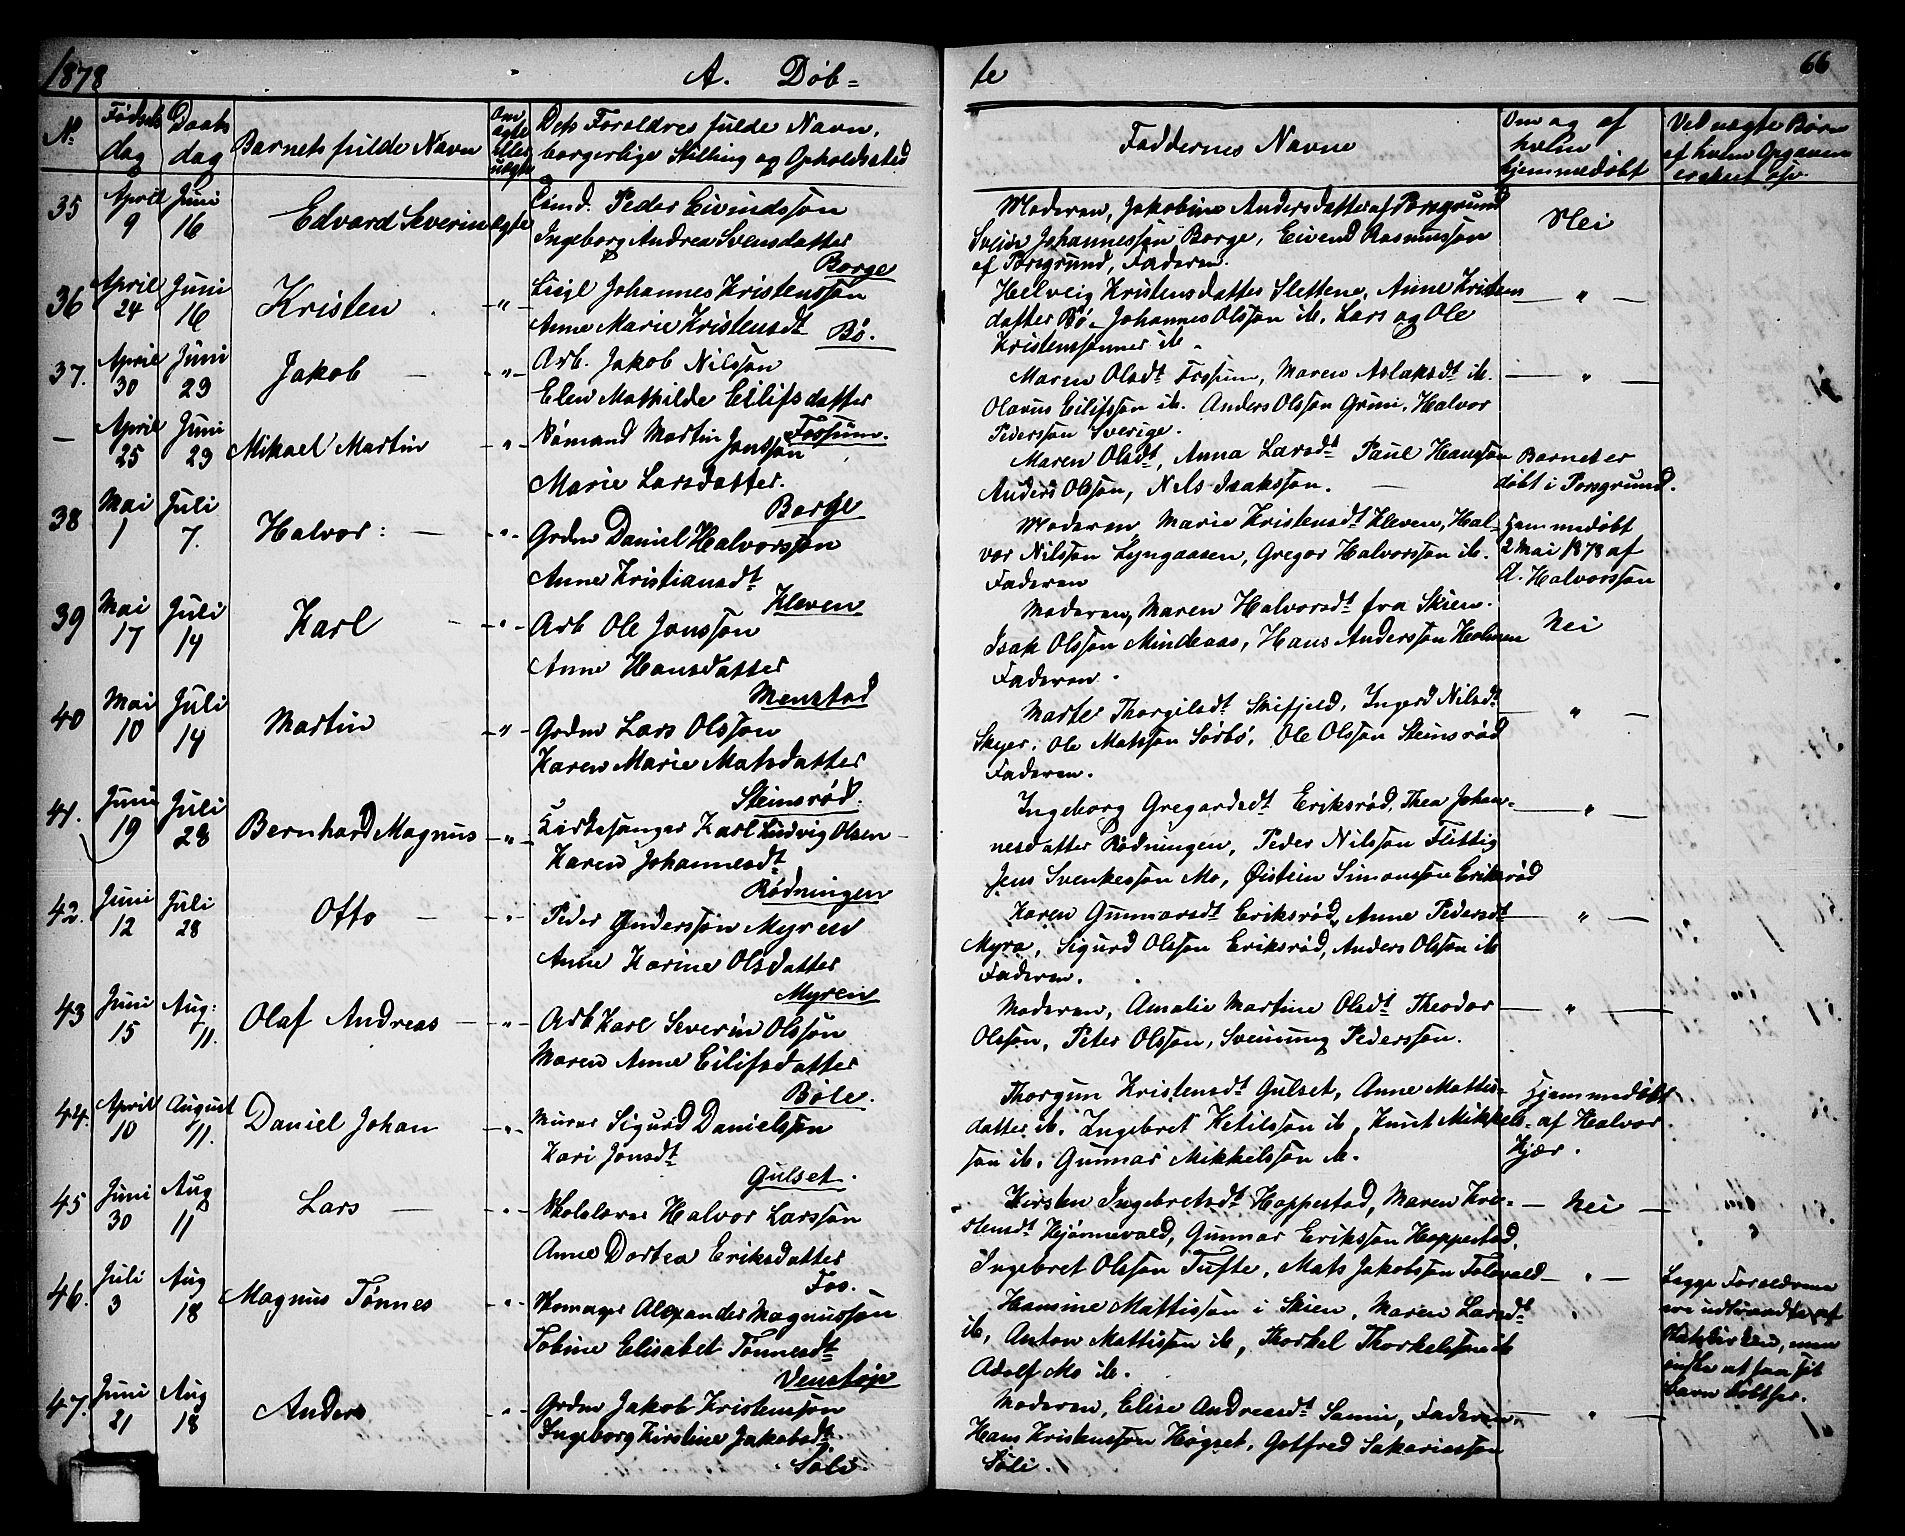 1878 A. Døb- te 66
No Fødsels dag Daabs dag Barnets fulde Navn Om ægte eller uægte Dets Forældres fulde Navn, borgerlige Stilling og Opholdssted Faddernes Navne Om og af hvem hjemmedøbt Ved uægte Børn af hvem Opgaven
35 April 9 Juni 16 Edvard Severin ægte Peder Eivindssøn
Ingeborg Andrea Svensdatter
Borge
Moderen, Jakobine Andersdatter af Porsgrund
Johannessøn Borge, Eivend Rasmussøn
af Porsgrund, Faderen.
Nei
36 April 24 Juni 16 Kristen - " - Johannes Kristenssøn
Anne Marie Kristensdt
Bø.
Helveig Kristensdatter Slettene, Anne Kristens
datter Bø, Johannes Olssøn ib. Lars og Ole
Kristenssønner ib.
— " —
37. April 30 Juni 23 Jakob - " - Arb. Jakob Nilssøn
Elen Mathilde Eilifsdatter
Fossum.
Maren Olsdt Fossum, Maren Aslaksdt ib.
Olavus Eilifssøn ib. Anders Olssøn Grini, Halvor
Pederssøn Sverige.
— " —
— April 25 Juni 23 Mikael Martin - " - Sømand Martin Jonssøn
Marie Larsdatter.
Borge
Maren Olsdt, Anna Larsdt Paul Hanssøn
Anders Olssøn, Nels Isakssøn.
Barnet er
døbt i Porsgrund.
38 Mai 1 Juli 7. Halvor - " - Grdm Daniel Halvorssøn
Anne Kristiansdt
Kleven
Moderen, Marie Kristensdt Kleven, Hal-
vor Nilssøn Lyngaasen, Gregor Halvorssøn ib.
Faderen
Hjemmedøbt
2 Mai 1878 af
D. Halvorssøn
39 Mai 17 Juli 14 Karl - " - Arb Ole Jonssøn
Anne Hansdatter
Menstad
Moderen, Maren Halvorsdt fra Skien.
Isak Olssøn Mindeaas, Hans Anderssøn Holmen
Faderen.
Nei
40 Mai 10 Juli 14 Martin - " - Grdm Lars Olssøn
Karen Marie Matsdatter
Steinsrød.
Marte Thorgilsdt Skifjeld, Ingerd Nilsdt
Skyer, Ole Matssøn Sørbø, Ole Olssøn Steinsrød
Faderen.
— " —
41. Juni 19 Juli 28 Bernhard Magnus - " - Kirkesanger Karl Ludvig Olsen
Karen Johannesdt
Rødningen
Ingeborg Gregardsdt Eriksrød, Thea Johan-
nesdatter Rødningen, Peder Nilssøn Flittig
Jens Svenkessøn Mo, Øistein Simonssøn Eriksrød
— " —
42. Juni 12 Juli 28 Otto - " - Peder Gunderssøn Myren
Anne Karine Olsdatter
Myren
Karen Gunnarsdt Eriksrød, Anne Pedersdt
Myra, Sigurd Olssøn Eriksrød, Anders Olssøn ib
Faderen.
— " —
43 Juni 15 Aug: 11. Olaf Andreas - " - Arb Karl Severin Olssøn
Maren Anne Eilifsdatter
Bøle.
Moderen, Amalie Martine Olsdt Theodor
Olssøn, Peter Olssøn, Sveinung Pederssøn.
— " —
44. April 10 August 11. Daniel Johan - " - Murer Sigurd Danielssøn
Kari Jonsdt
Gulset.
Thorgun Kristensdt Gulset, Anne Mattes-
datter ib. Ingebret Ketilssøn ib, Knut Mikkels-
søn ib. Gunnar Mikkelssøn ib.
Hjemmedøbt
af Halvor
Kjær.
45 Juni 30 Aug 11 Lars - " - Skolelærer Halvor Larssøn
Anne Dortea Eriksdatter
Fos.
Kirsten Ingebretsdt Hoppestad, Maren Kri-
stensdt Kjørnevald, Gunnar Erikssøn Hoppestad,
Ingebret Olssøn Tufte, Mats Jakobssøn
— Nei —
46. Juli 3 Aug 18 Magnus Tønnes - " - Skomager Alexander Magnussøn
Tobine Elisabet Tønnesdt
Venstøp
Hansine Mattissøn i Skien, Maren Larsdt
ib, Anton Mattissøn ib, Thorkel Thorkelssøn ib
Adolf Mo ib.
— " —
Begge Forældrene
ere udtraadte af
Statskirken, men
ønske at faa sit
Barn døbt her.
47. Juni 21 Aug 18 Anders - " - Grdm Jakob Kristenssøn
Ingeborg Kirstine Jakobsdt
Søli.
Moderen, Elise Andreasdt Sanni, Faderen,
Hans Kristenssøn Høgset, Gotfred Sakariassøn
Søli.
— " —